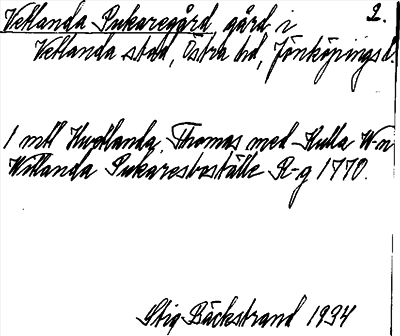 Vetlanda Pukaregård, gård i 2.
Vetlanda stad, Östra hd, Jönköpings l.
1 mtl Hvetlanda Thomas med Kulla W-n
Wetlanda Pukaresboställe R-g 1770.
Stig Bäckstrand 1934